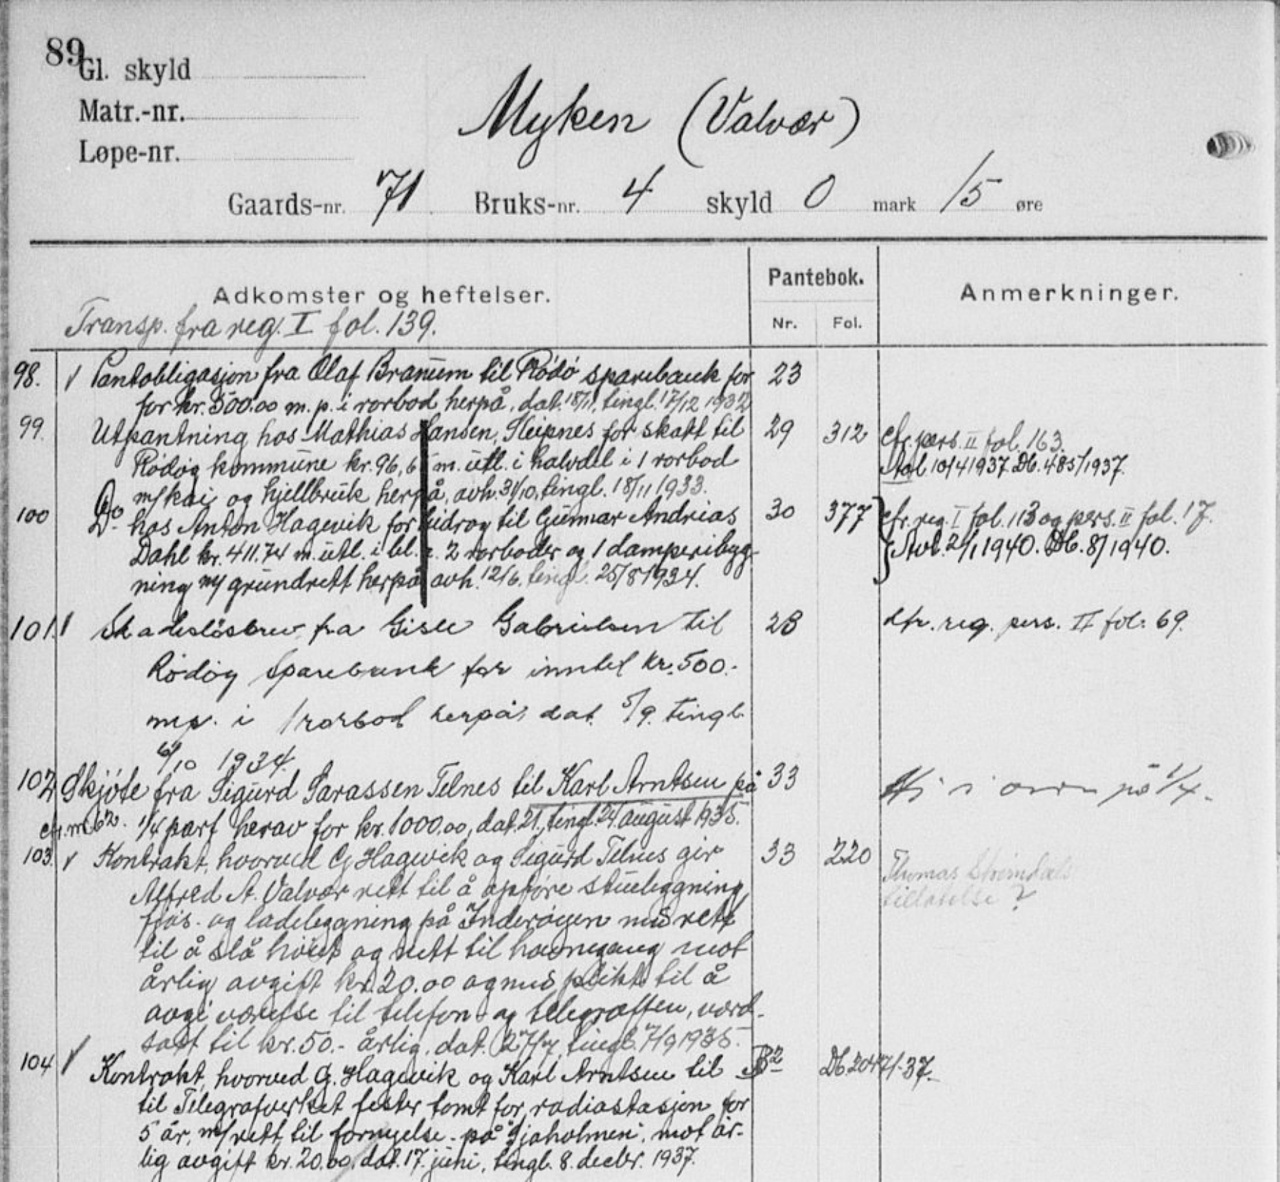 89
Gl. skyld
Matr.-nr.
Løpe-nr.
Myken (Valvær)
Gaards-nr. 71 Bruks-nr. 4 skyld 0 mark 15 øre
Adkomster og heftelser. Pantebok. Anmerkninger.
Nr. Fol.
Transp. fra reg. I fol. 139.
98. Pantobligasjon fra Olaf Branum til Rödö sparebank for 23
for kr. 500.00 m. p. i rorbod herpå, dat. 18/11, tingl. 17/12 1932
99. Utpantning hos Mathias Hansen, Sleipnes for skatt til 29 312 cfr. pers. II fol. 163.
Rödöy kommune kr. 96,65 m. utl. i halvdel i 1 rorbod 10/4 1937. Db. 485/1937.
m/kai og hjellbruk herpå, avh. 31/10, tingl. 18/11 1933.
100 Do hos Anton Hagevik for bidrag til Gunnar Andrias 30 377 cfr. reg. I fol. 113 og pers. II fol. 17.
Dahl kr. 411.74 m. utl. i bl. a. 2 rorboder og 1 damperibyg- 2/1 1940. Db. 8/1940.
ning m/ grunnrett herpå avh. 12/6. tingl. 25/8 1934.
101. Skadeslösbrev fra Gisle Gabrielsen til 28 cfr. reg. pers. II fol. 69.
Rödöy Sparebank for inntil kr. 500.-
mp. i 1 rorbod herpå dat. 5/9. tingl.
6/10 1934.
102 Skjöte fra Sigurd Larassen Telnes til Karl Arntsen på 33
cfr. nr. 62. 1/4 part herav for kr. 1000.00, dat. 21, tingl. 24 august 1935.
103. Kontrakt, hvorved G. Hagevik og Sigurd Telnes gir 33 220 Thomas
Alfred A. Valvær rett til å opföre stuebygning, tillatelse ?
fjös- og ladebygning på Inderöyen m/ rett
til å slå höiet og rett til havnegang mot
årlig avgift kr. 20.00 og plikt til å
avgi værelse til telefon- og telegraffen, verd-
satt til kr. 50.- årlig. dat. 27/7, tingl. 7/9 1935.
104 Kontrakt, hvorved G. Hagevik og Karl Arntsen til B2
til Telegrafverket fester tomt for radiostasjon for
5 år, m/rett til fornyelse på "Sjaholmen", mot år-
lig avgift kr. 20.00, dat. 17. juni, tingl. 8. decbr. 1937.